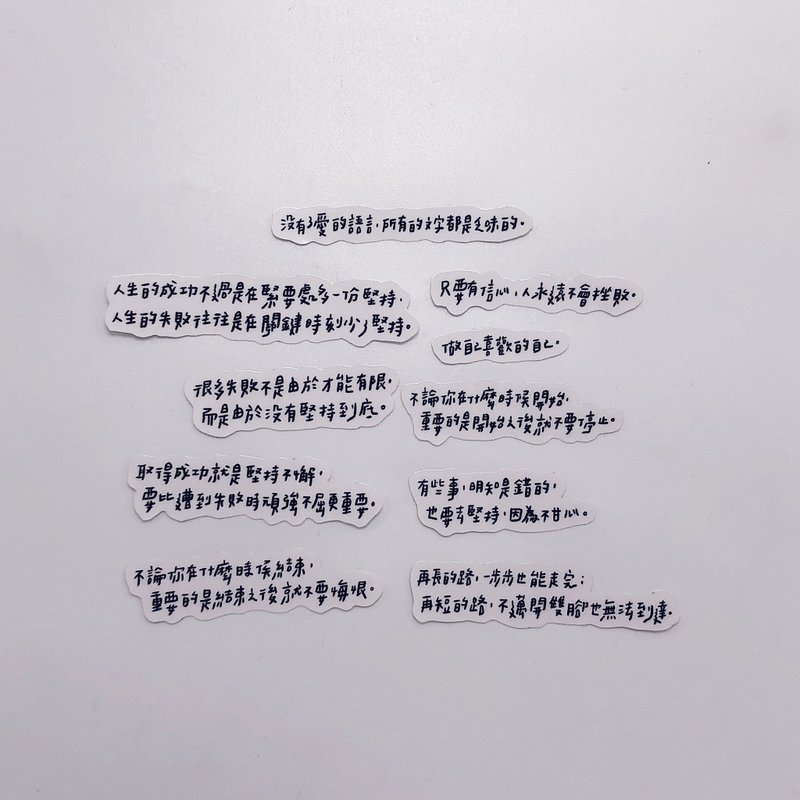 沒有了愛的語言，所有的文字都是乏味的。
人生的成功不過是在緊要處多一份堅持，
人生的失敗往往是在關鍵時刻少了堅持。
只要有信心，人永遠不會挫敗。
做自己喜歡的自己。
很多失敗不是由於才能有限，
而是由於沒有堅持到底。
不論你在什麼時候開始，
重要的是開始之後就不要停止。
取得成功就是堅持不懈，
要比遭到失敗時頑強不屈更重要。
有些事，明知是錯的，
也要去堅持，因為不甘心。
不論你在什麼時候結束，
重要的是結束之後就不要悔恨。
再長的路，一步步也能走完；
再短的路，不邁開雙腳也無法到達。